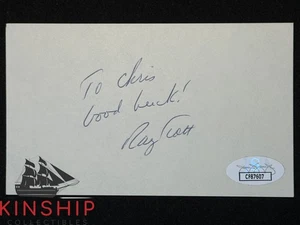 To Chris
Good Luck!
Ray Scott
CP87607
KINSHIP
COLLECTIBLES